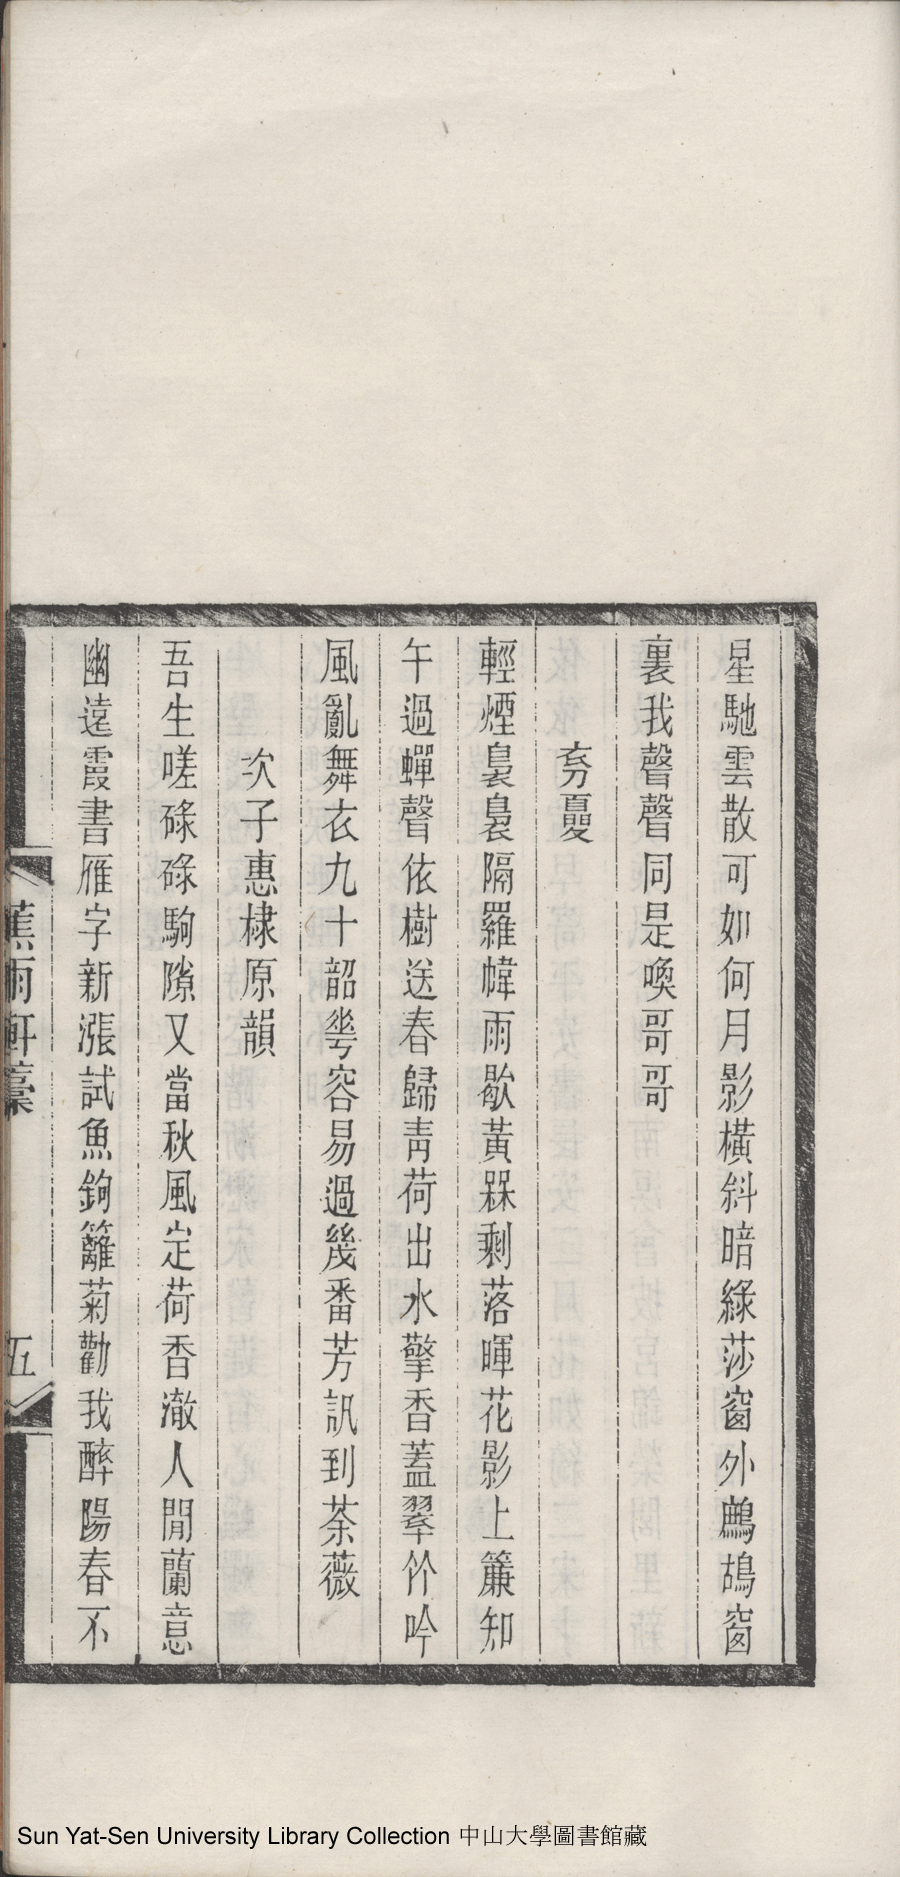 星馳雲散可如何月影橫斜暗綠莎窗外鷓鴣窗
裏我聲聲同是喚哥哥
夯憂
輕煙裊裊隔羅幃雨歇黃槑剩落暉花影上簾知
午過蟬聲依樹送春歸靑荷出水擎香蓋翠竹吟
風亂舞衣九十韶華容易過幾番芳訊到荼薇
次子惠棣原韻
吾生嗟碌碌駒隙又當秋風定荷香澈人閒蘭意
幽遠霞書雁字新漲試魚鉤籬菊勸我醉陽春不
蕉雨軒藁
五
Sun Yat-Sen University Library Collection 中山大學圖書館藏